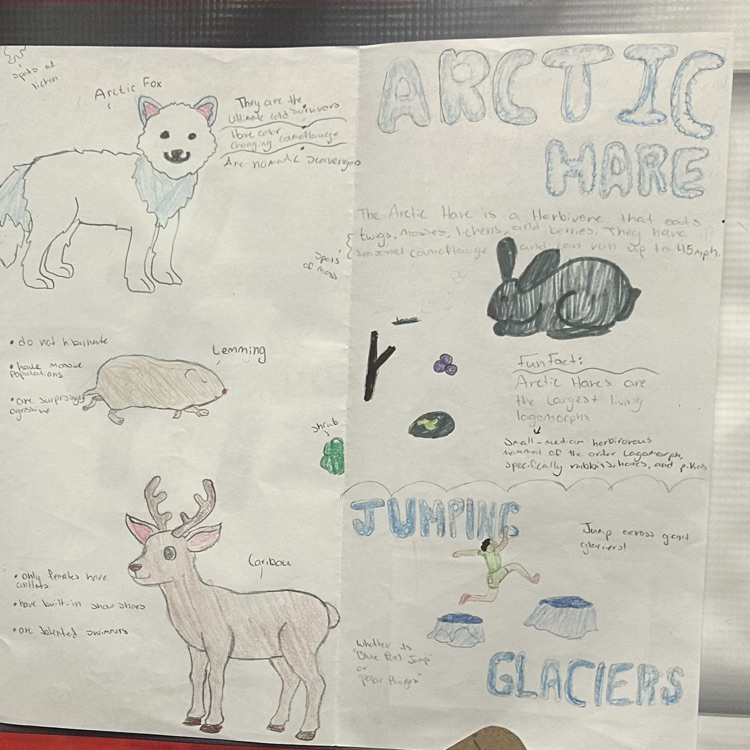 spots of
lichen
Arctic Fox
They are the
Ultimate cold survivors
Have color
changing camoflauge
Are nomadic scavengers
spots
of moss
• do not hibernate
• have massive
populations
• are surprisingly
agressive
Lemming
shrub
Caribou
• only females have
• have built-in snow shoes
• are talented swimmers
ARCTIC
HARE
The Arctic Hare is a Herbivore that eats
twigs, mosses, lichens, and berries. They have
seasonal camoflauge and can run up to 45mph.
Fun Fact:
Arctic Hares are
the largest living
lagomorphs
Small-medium herbivorous
mammal of the order Lagomorph,
specifically rabbits, hares, and pikas
JUMPING
Jump across giant
glaciers!
Whether its
Jump"
or
"Polar Plunges"
GLACIERS